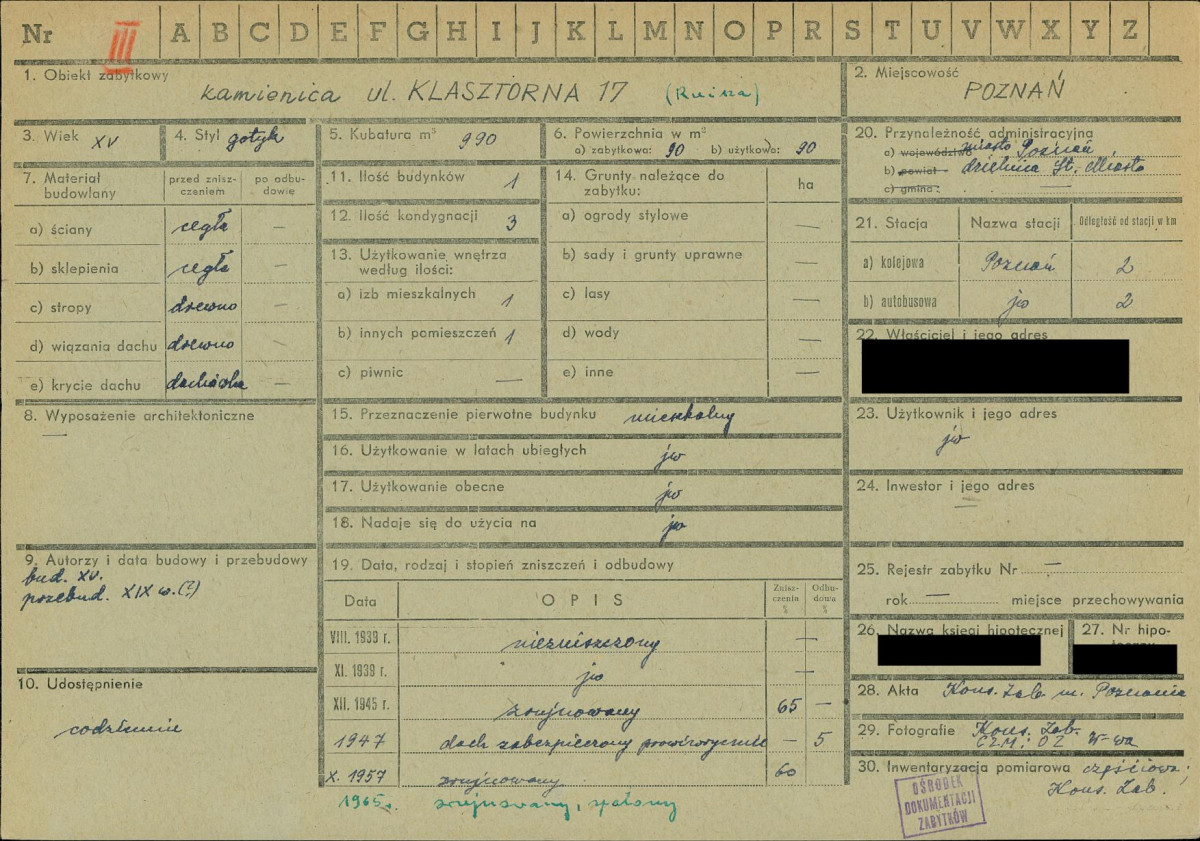 Nr III A B C D E F G H I J K L M N O P R S T U V W X Y Z
1. Obiekt zabytkowy
kamienica ul. KLASZTORNA 17 (Ruina)
2. Miejscowość
POZNAŃ
3. Wiek XV
4. Styl gotyk
5. Kubatura m³ 990
6. Powierzchnia w m²
a) zabytkowa: 90 b) użytkowa: 90
7. Materiał budowlany
przed zniszczeniem
po odbudawie
a) ściany cegła —
b) sklepienia cegła —
c) stropy drewno —
d) wiązania dachu drewno —
e) krycie dachu dachówka —
8. Wyposażenie architektoniczne
—
9. Autorzy i data budowy i przebudowy
bud. XV.
przebud. XIX w. (?)
10. Udostępnienie
codziennie
11. Ilość budynków 1
12. Ilość kondygnacji 3
13. Użytkowanie wnętrza
według ilości:
a) izb mieszkalnych 1
b) innych pomieszczeń 1
c) piwnic —
14. Grunty należące do
zabytku: ha
a) ogrody stylowe —
b) sady i grunty uprawne —
c) lasy —
d) wody —
e) inne —
15. Przeznaczenie pierwotne budynku mieszkalny
16. Użytkowanie w latach ubiegłych jw
17. Użytkowanie obecne jw
18. Nadaje się do użycia na jw
19. Data, rodzaj i stopień zniszczeń i odbudowy
Data OPIS Zniszczenia % Odbudowa %
VIII. 1939 r. niezniszczony —
XI. 1939 r. jw —
XII. 1945 r. zrujnowany 65 —
1947 dach zabezpieczony prowizorycznie — 5
X. 1957 zrujnowany 60
1965 r. zrujnowany, spalony
20. Przynależność adminisiracyjna
a) województwo miasto Poznań
b) powiat dzielnica St. Miasto
c) gmina: —
21. Stacja Nazwa stacji Odległość od stacji w km
a) kolejowa Poznań 2
b) autobusowa jw 2
22. Właściciel i jego adres
23. Użytkownik i jego adres
jw
24. Inwestor i jego adres
—
25. Rejestr zabytku Nr —
rok — miejsce przechowywania
26. Nazwa księgi hipotecznej
27. Nr hipo-
28. Akta Kons. Zab. m. Poznania
29. Fotografie Kons. Zab.
CZM: OZ W-wa
30. Inwentaryzacja pomiarowa częściowa,
Kons. Zab.
OŚRODEK
DOKUMENTACJI
ZABYTKÓW